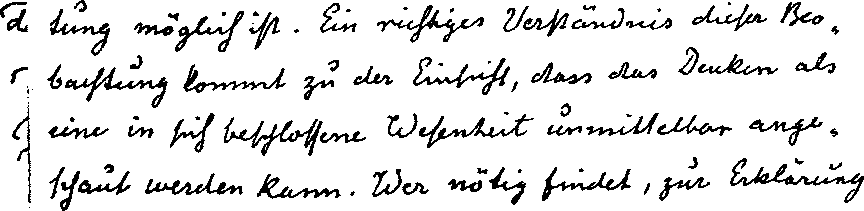 tung möglich ist. Ein richtiges Verständnis dieser Beo-
bachtung kommt zu der Einsicht, dass das Denken als
eine in sich beschlossene Wesenheit unmittelbar ange-
schaut werden kann. Wer nötig findet, zur Erklärung